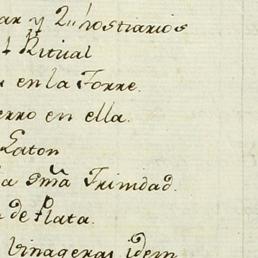 ar y 2. hostiarios
Ritual
en la Torre.
erro en ella.
Laton
a SSma Trinidad.
de Plata.
Vinageras idem